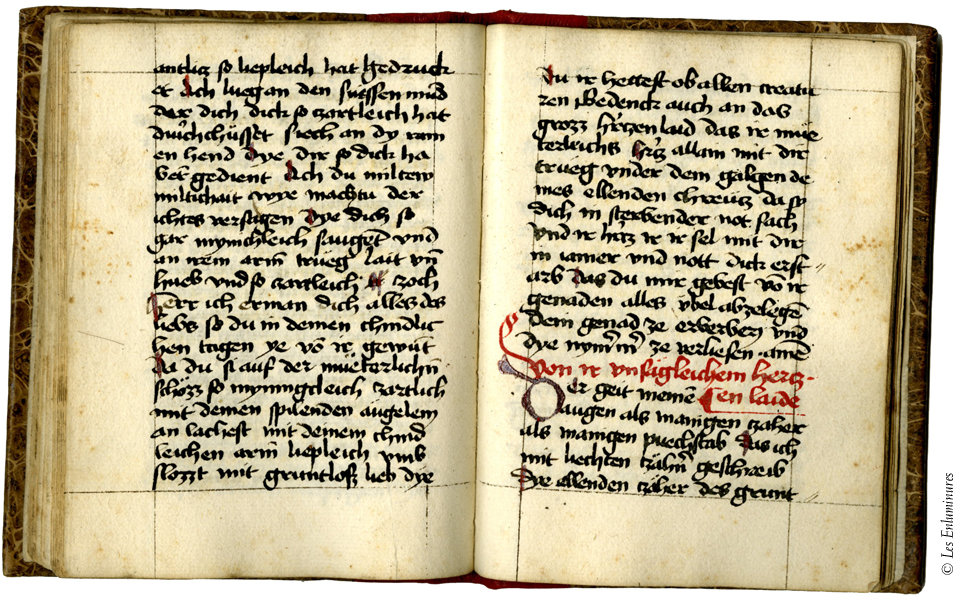 antlicz so liepleich hat gedruck
et Ach lueg an den suessen mund
der dich dick so czartleich hat
durchchüsset siech an dy rain
en hend Dye dir so dick ha
bent gedient Ach du miltew
miltichait wye machtu der
ichtes versagen Dye dich so
gar mynichleich sauget vnd
an irem arm trueg lait vn
hueb vnd so czartleich czoch
herr ich erman dich alles des
liebs so du in deinen chindlic
hen tagen ye vō ir gewüt
Da du si auf der mueterlichn
schözz so mynnigcleich czartlich
mit deinen spilenden äugelein
an lachest mit deinem chind
leichen arm liepleich vmb
slozzt mit gruntloss lieb dye
Du ir hettest ob allen creatu
ren Wedenck auch an das
grozz herczenlaid das ir mue
terleichs hercz allain mit dir
trueg vnder dem galgen de
ines ellenden chreucz da so
dich in sterbender not sach
Vnd ir hercz ir ir sel mit dir
in iamer vnd nott dick erst
arb Das du mir gebest vō ir
genaden alles vbel abzelegē
Dein genad ze erberben vnd
dye nymmer ze verliesen amē
Von ir vnsägleichem hercz-
en laide
Der geit meinē
augen als manigen czaher
als manigen puechstab Das ich
mit liechten czähern geschreib
Dye ellenden czäher des grunt
© Les Enluminures